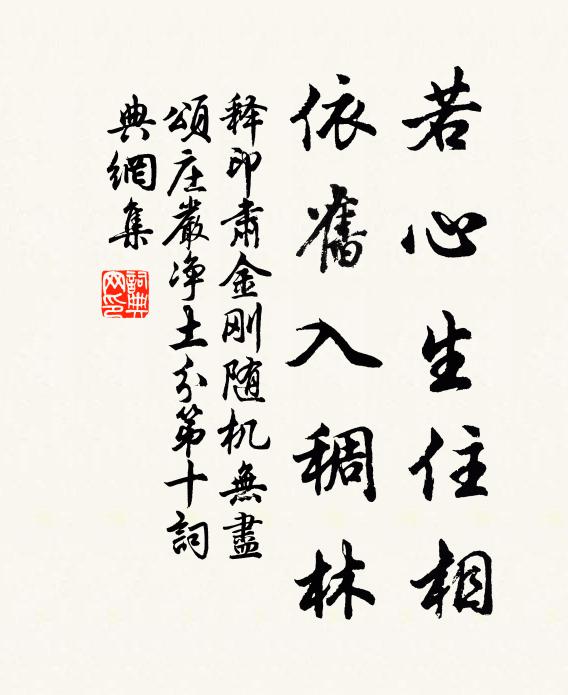 若心生住相
依舊入稠林
释印肅金刚随机無盡
頌庄嚴净土分第十詞
典網集
詞典网印